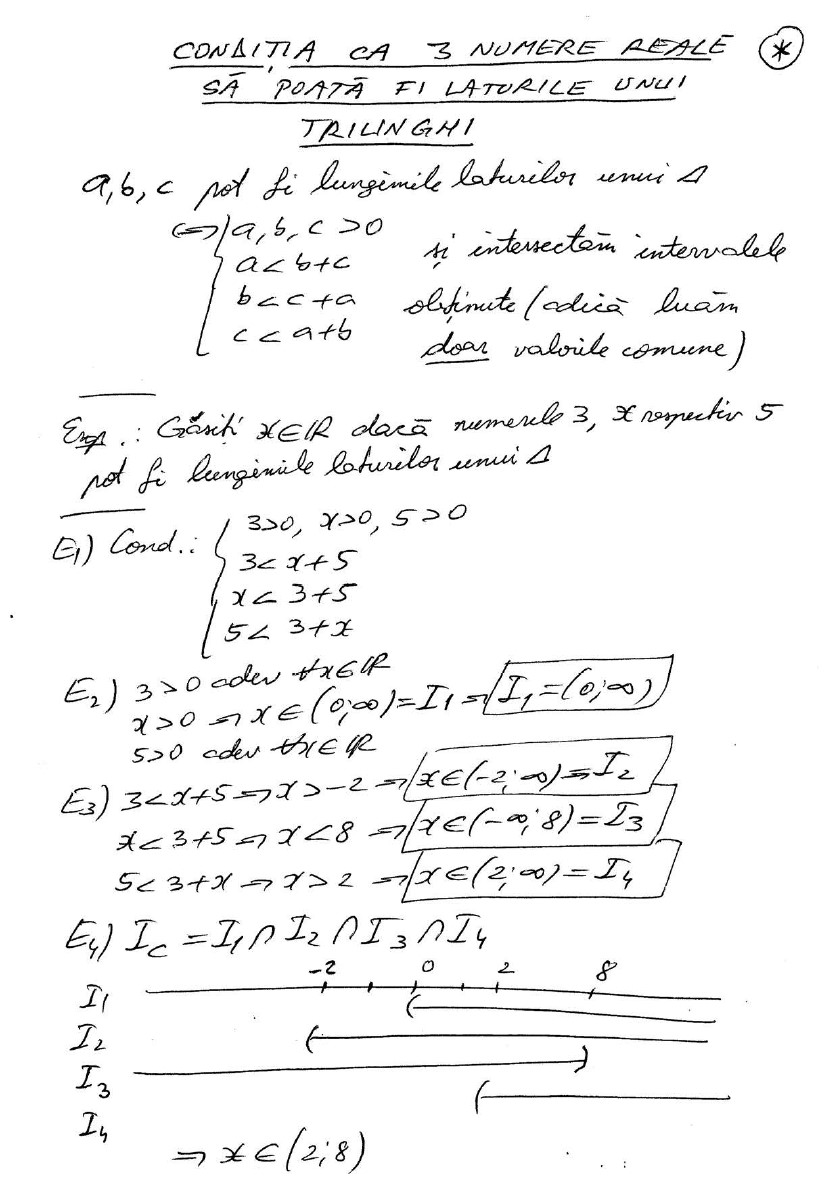 CONDIȚIA CA 3 NUMERE REALE *
SĂ POATĂ FI LATURILE UNUI
TRILINGHI
a, b, c pot fi lungimile laturilor unui Δ
<=> { a, b, c > 0
a < b+c și intersectăm intervalele
b < c+a obținute (adică luăm
c < a+b doar valorile comune)
Exp.: Găsiți x∈ℝ dacă numerele 3, x respectiv 5
pot fi lungimile laturilor unui Δ
E1) Cond.: { 3>0, x>0, 5>0
3 < x+5
x < 3+5
5 < 3+x
E2) 3>0 adev ∀x∈ℝ
x>0 => x∈(0;∞)=I1 => I1=(0;∞)
5>0 adev ∀x∈ℝ
E3) 3<x+5 => x>-2 => x∈(-2;∞)=I2
x<3+5 => x<8 => x∈(-∞;8)=I3
5<3+x => x>2 => x∈(2;∞)=I4
E4) Ic = I1∩I2∩I3∩I4
-2 0 2 8
I1
I2
I3
I4
=> x∈(2;8)